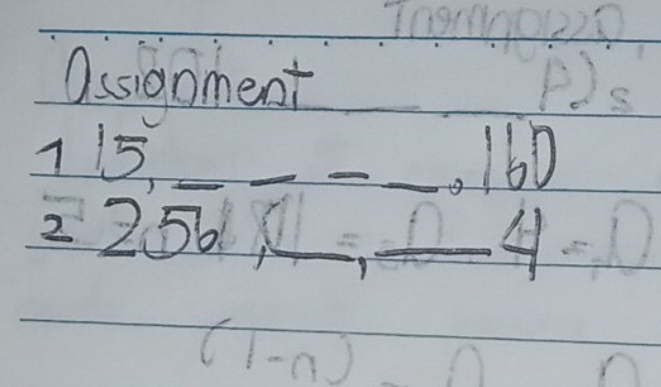 Assignment
1 15, _ _ _ _, 160
2 256, __, __ 4